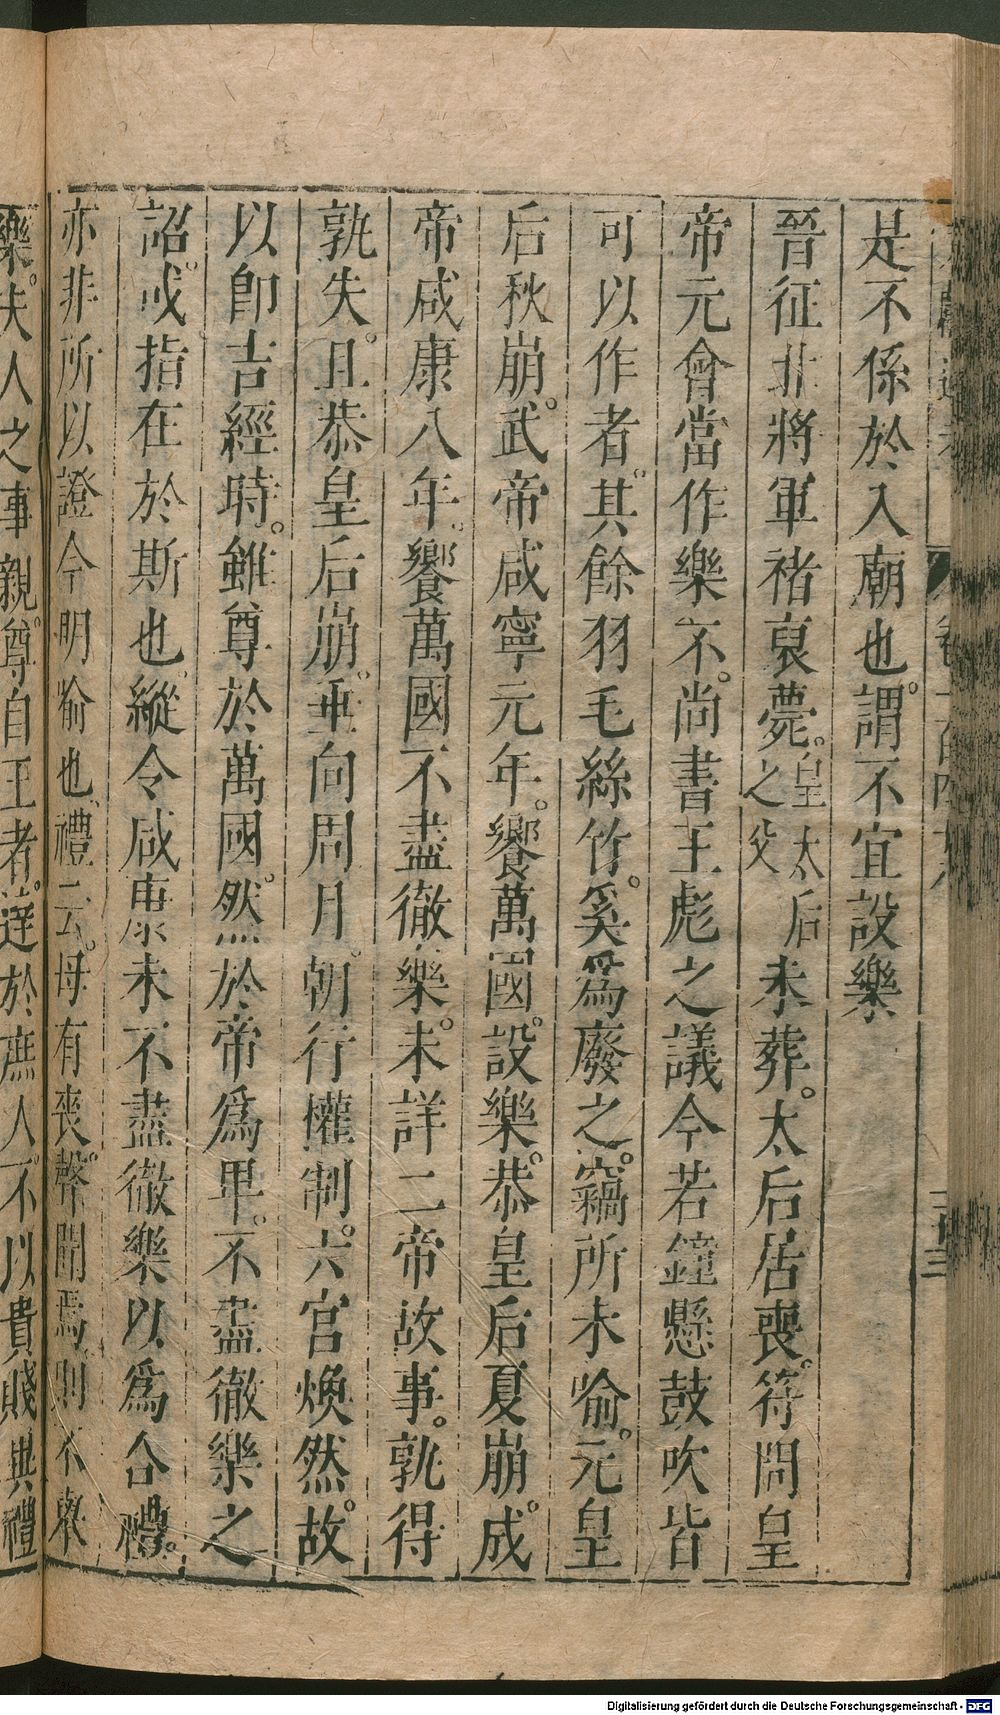 是不係於入廟也謂不宜設樂
晉征北將軍褚裒薨皇太后之父未葬太后居喪符問皇
帝元會當作樂不尚書王彪之議今若鐘懸鼓吹皆
可以作者其餘羽毛絲竹奚爲廢之竊所未喻元皇
后秋崩武帝咸寧元年饗萬國設樂恭皇后夏崩成
帝咸康八年饗萬國不盡徹樂未詳二帝故事孰得
孰失且恭皇后崩垂向周月朝行權制六宮煥然故
以卽吉經時雖尊於萬國然於帝爲卑不盡徹樂之
詔或指在於斯也縱令咸康未不盡徹樂以爲合禮
亦非所以證今明喻也禮云母有喪聲聞焉則不舉
樂夫人之事親尊自王者達於庶人不以貴賤異禮
Digitalisierung gefördert durch die Deutsche Forschungsgemeinschaft - DFG